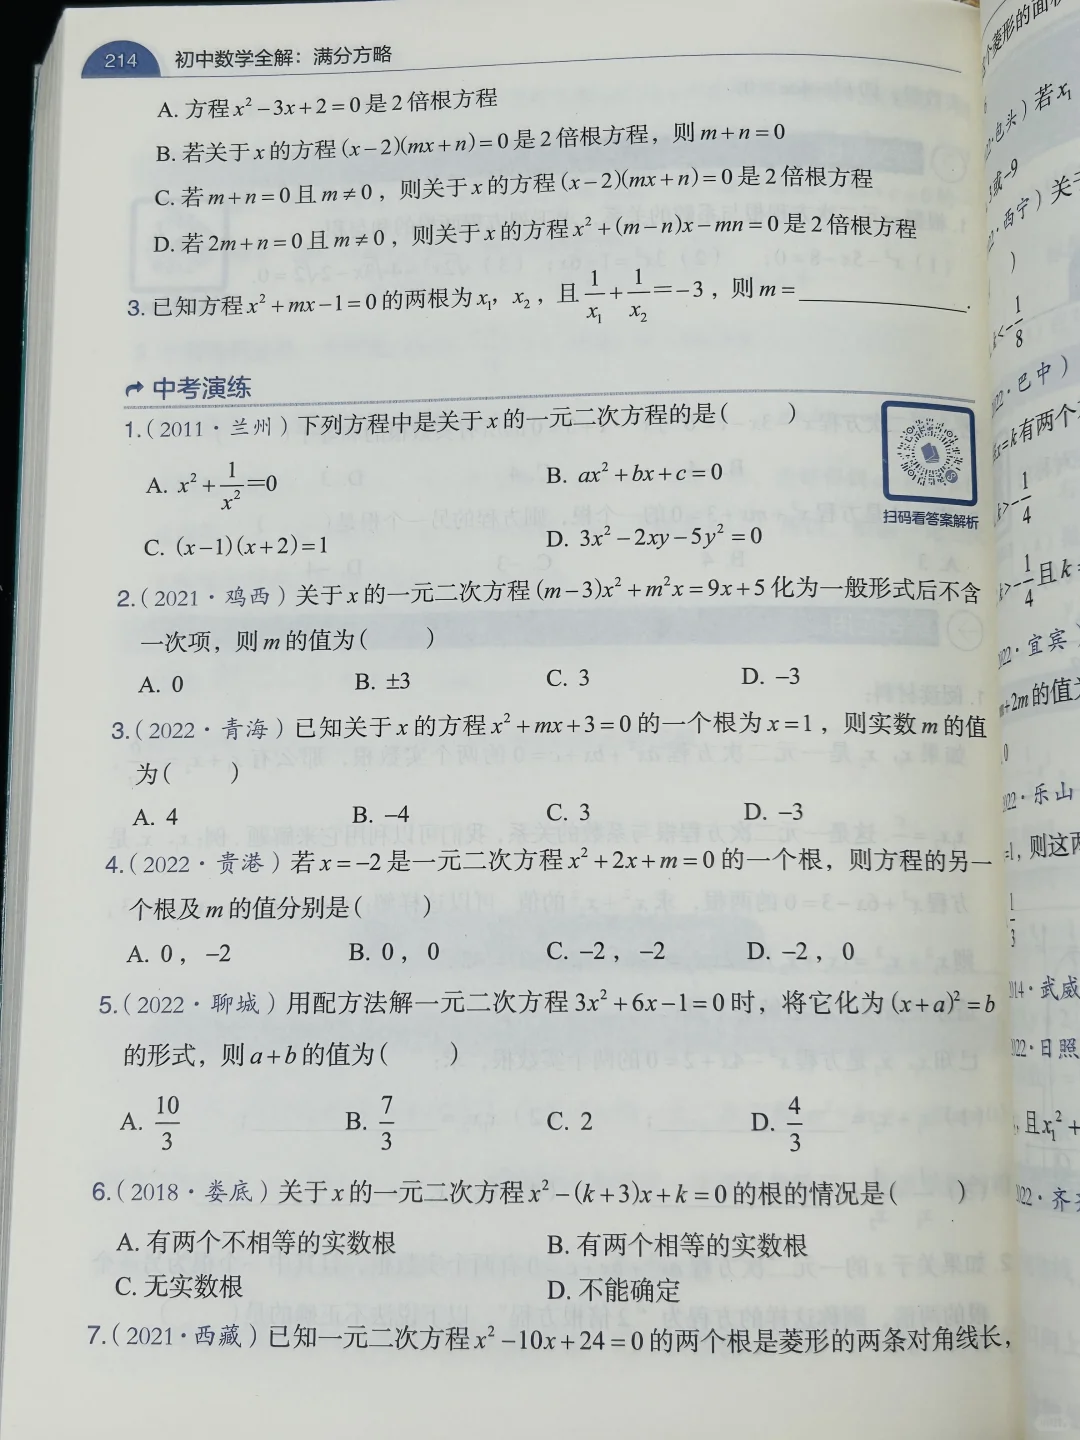 214 初中数学全解：满分方略
A. 方程x²−3x+2=0是2倍根方程
B. 若关于x的方程(x−2)(mx+n)=0是2倍根方程，则m+n=0
C. 若m+n=0且m≠0，则关于x的方程(x−2)(mx+n)=0是2倍根方程
D. 若2m+n=0且m≠0，则关于x的方程x²+(m−n)x−mn=0是2倍根方程
3. 已知方程x²+mx−1=0的两根为x₁，x₂，且1/x₁+1/x₂=−3，则m=________.
中考演练
1.(2011·兰州)下列方程中是关于x的一元二次方程的是( )
A. x²+1/x²=0 B. ax²+bx+c=0
扫码看答案解析
C. (x−1)(x+2)=1 D. 3x²−2xy−5y²=0
2.(2021·鸡西)关于x的一元二次方程(m−3)x²+m²x=9x+5化为一般形式后不含
一次项，则m的值为( )
A. 0 B. ±3 C. 3 D. −3
3.(2022·青海)已知关于x的方程x²+mx+3=0的一个根为x=1，则实数m的值
为( )
A. 4 B. −4 C. 3 D. −3
4.(2022·贵港)若x=−2是一元二次方程x²+2x+m=0的一个根，则方程的另一
个根及m的值分别是( )
A. 0，−2 B. 0，0 C. −2，−2 D. −2，0
5.(2022·聊城)用配方法解一元二次方程3x²+6x−1=0时，将它化为(x+a)²=b
的形式，则a+b的值为( )
A. 10/3 B. 7/3 C. 2 D. 4/3
6.(2018·娄底)关于x的一元二次方程x²−(k+3)x+k=0的根的情况是( )
A. 有两个不相等的实数根 B. 有两个相等的实数根
C. 无实数根 D. 不能确定
7.(2021·西藏)已知一元二次方程x²−10x+24=0的两个根是菱形的两条对角线长，
个菱形的面积
包头)若x₁
3或−9
·西宁)关于
)
k<−1/8
022·巴中)
x=k有两个不
k>−1/4
k>−1/4且k≠
022·宜宾
m+2m的值为
0
022·乐山
=1，则这两
1/3
014·武威
022·日照
，且x₁²+
022·齐齐